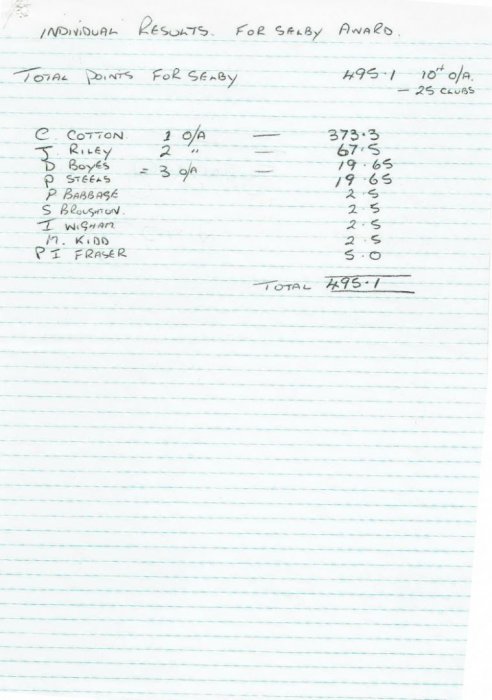 INDIVIDUAL RESULTS. FOR SELBY AWARD.
TOTAL POINTS FOR SELBY 495·1 10th O/A.
- 25 CLUBS
C. COTTON 1 O/A — 373·3
J. RILEY 2 " — 67·5
D BOYES = 3 O/A — 19·65
P STEELS 19·65
P BABBAGE 2·5
S BROUGHTON. 2·5
I WIGHAM 2·5
M. KIDD 2·5
P I FRASER 5·0
TOTAL 495·1